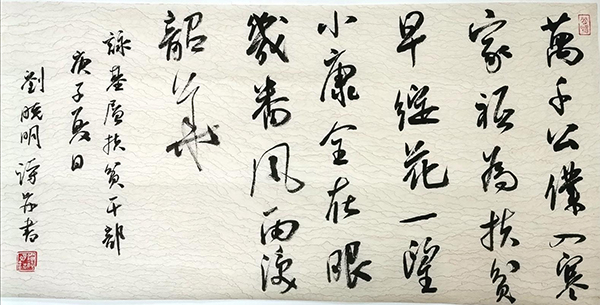 萬千公僕入寒
家祗為扶貧
早綻花一望
小康全在眼
幾番風雨
韶華
詠基层扶貧干部
庚子夏日
劉晓明詩并書